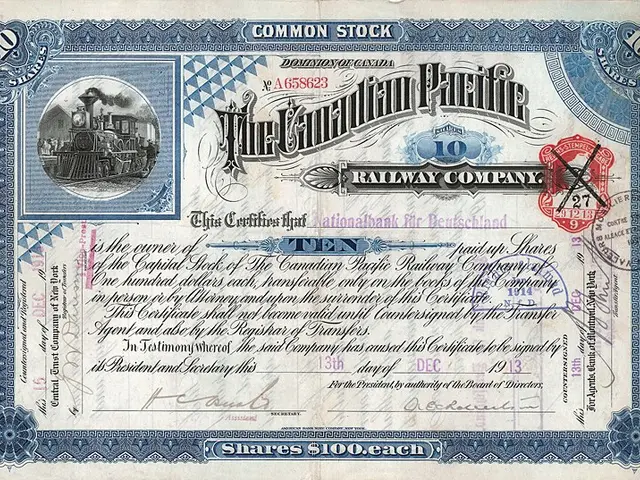 COMMON STOCK
10
10
SHARES
SHARES
DOMINION OF CANADA
No A658623
The Canadian Pacific
SHARES
10
RAILWAY COMPANY.
27
9
This Certifies that Nationalbank für Deutschland
is the owner of TEN paid up Shares
of the Capital Stock of The Canadian Pacific Railway Company of
One hundred dollars each, transferable only on the books of the Company
in person or by Attorney and upon the surrender of this Certificate.
This Certificate shall not become valid until Countersigned by the Transfer
Agent and also by the Registrar of Transfers.
In Testimony Whereof the said Company has caused this Certificate to be signed by
its President and Secretary, this 13th day of DEC 1913
For the President, by authority of the Board of Directors.
SECRETARY.
Assistant
AMERICAN BANK NOTE COMPANY, NEW YORK.
Shares $100. each
Countersigned and Registered
this 15 day of DEC 19
Central Trust Company of New York
Registrar of Transfers
by
COUNTERSIGNED
this 13th day of DEC 1913
For Agents, Bank of Montreal, New York
Transfer Agents
1914